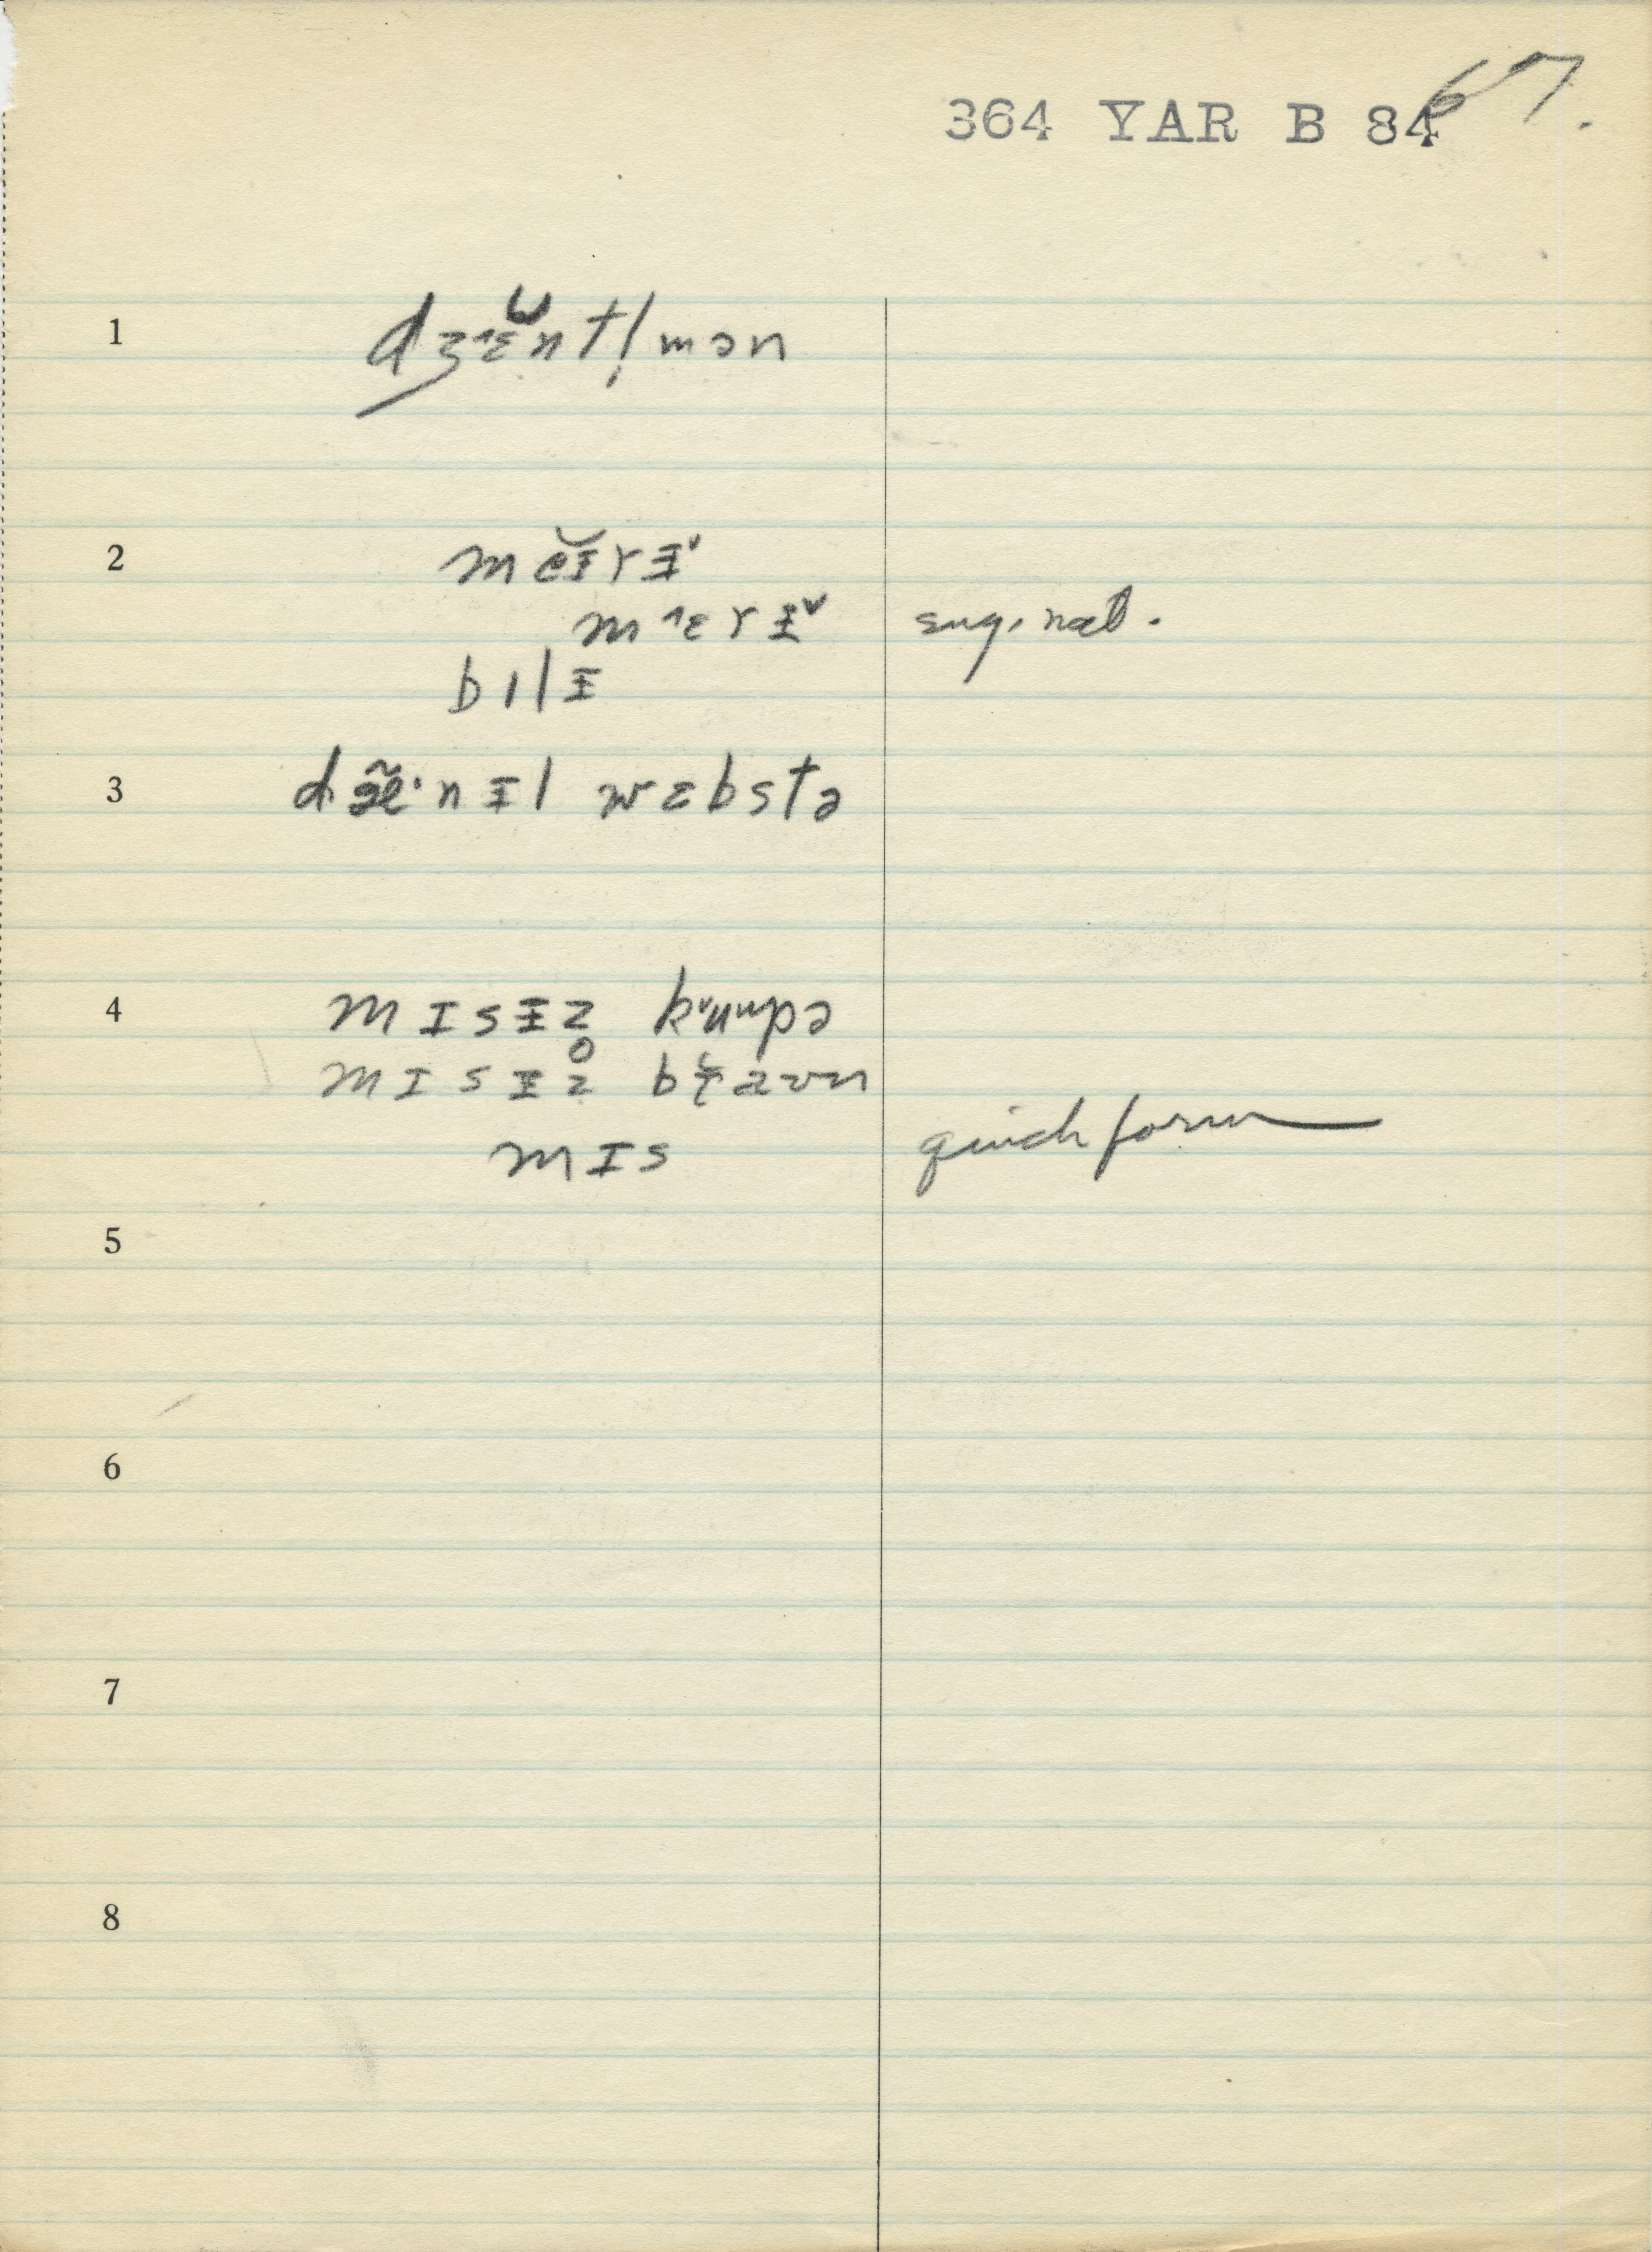 364 YAR B 84
67.
1 dʒ˄ɛ̆ntl̩mən
2 mĕɪ̆rɪ̵˅
m˄ɛrɪ̵˅ sug. nat.
bɪlɪ̵
3 dæ̃·nɪ̵l wɛbstə
4 mɪsɪ̵z k˅uᵘpə
mɪsɪ̵z̥
mɪs quick form
5
6
7
8